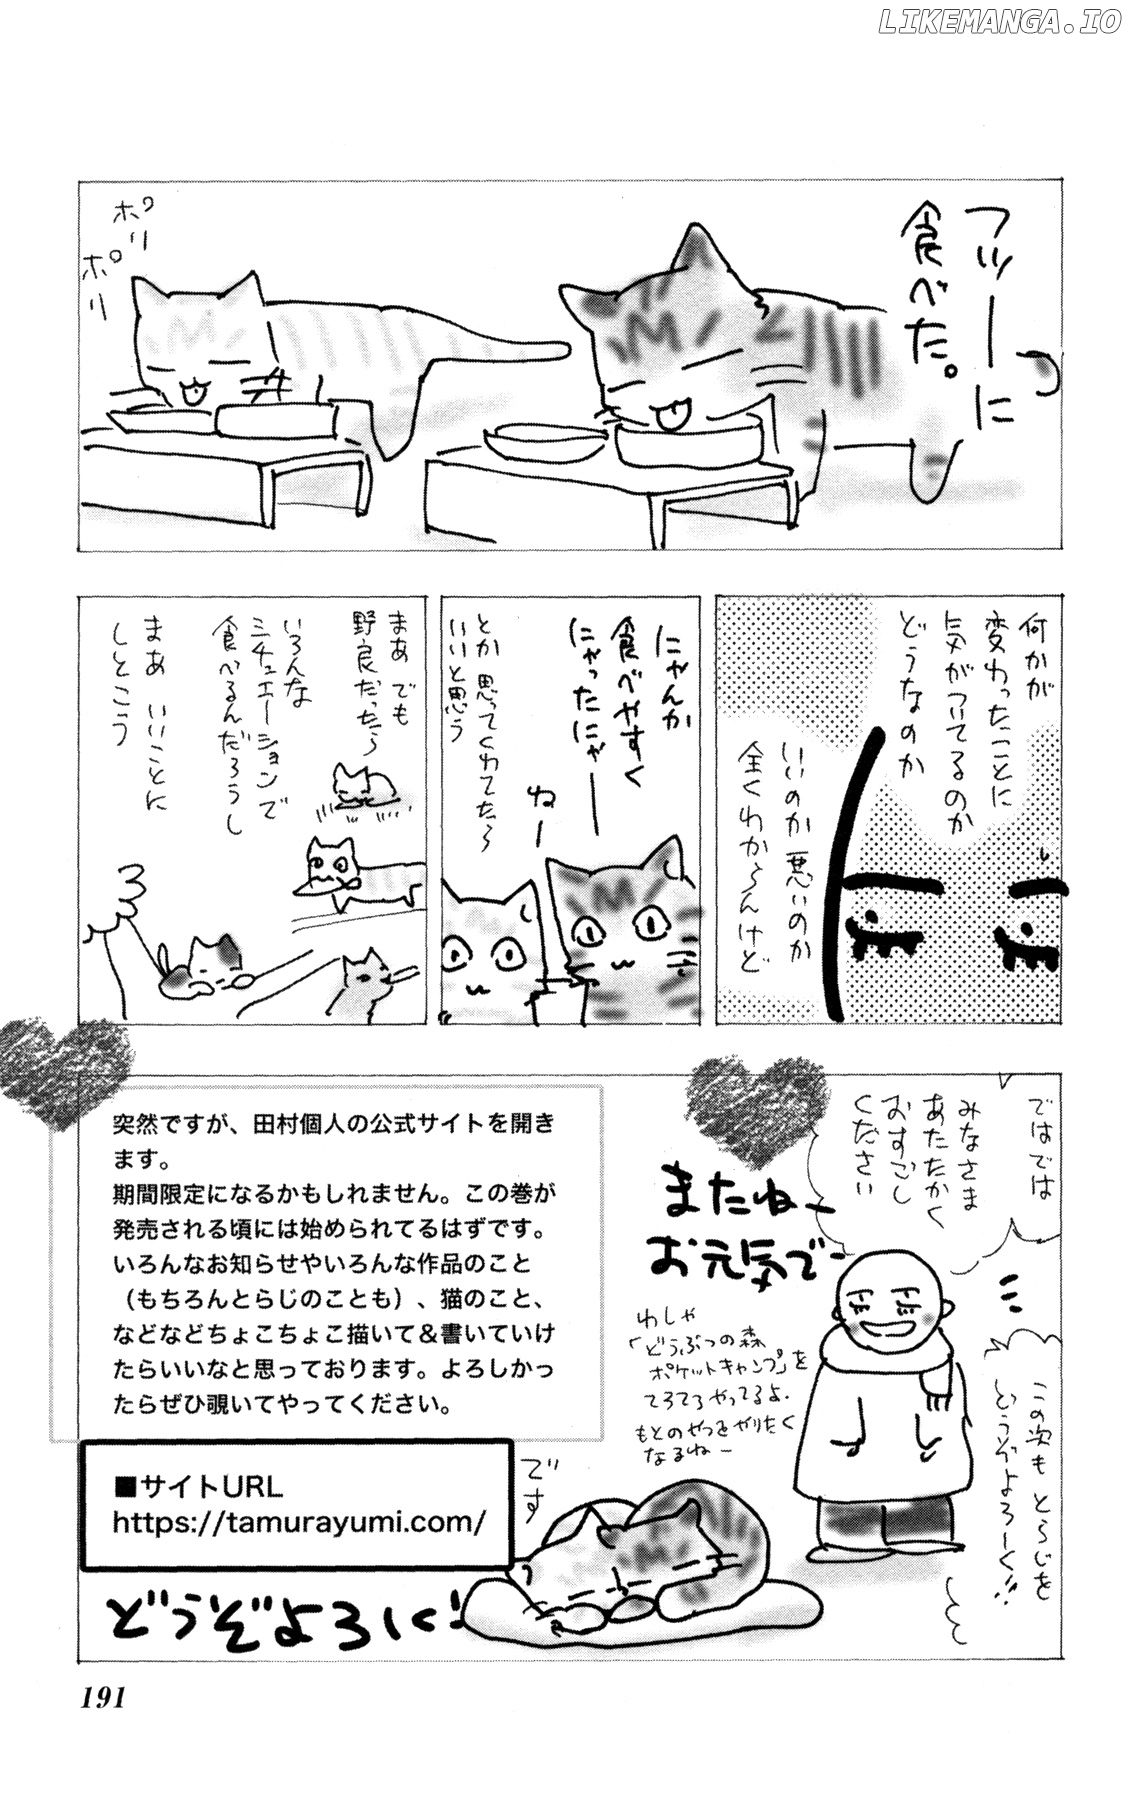 LIKEMANGA.IO
フツーに
食べた。
ポリ
ポリ
何かが
変わったことに
気がついてるのか
どうなのか
いいのか悪いのか
全くわからんけど
にゃんか
食べやすく
にゃったにゃー
ねー
とか思ってくれてたら
いいと思う
まあでも
野良だったら
いろんな
シチュエーションで
食べるんだろうし
まあいいことに
しとこう
ではでは
みなさま
あたたかく
おすごし
ください
この次もとらじを
どうぞよろーく!!
またねー
お元気でー
わしゃ
「どうぶつの森
ポケットキャンプ」を
てろてろやってるよ.
もとのやつをやりたく
なるねー
突然ですが、田村個人の公式サイトを開き
ます。
期間限定になるかもしれません。この巻が
発売される頃には始められてるはずです。
いろんなお知らせやいろんな作品のこと
（もちろんとらじのことも）、猫のこと、
などなどちょこちょこ描いて＆書いていけ
たらいいなと思っております。よろしかっ
たらぜひ覗いてやってください。
■サイトURL
https://tamurayumi.com/
です
どうぞよろしく!
191